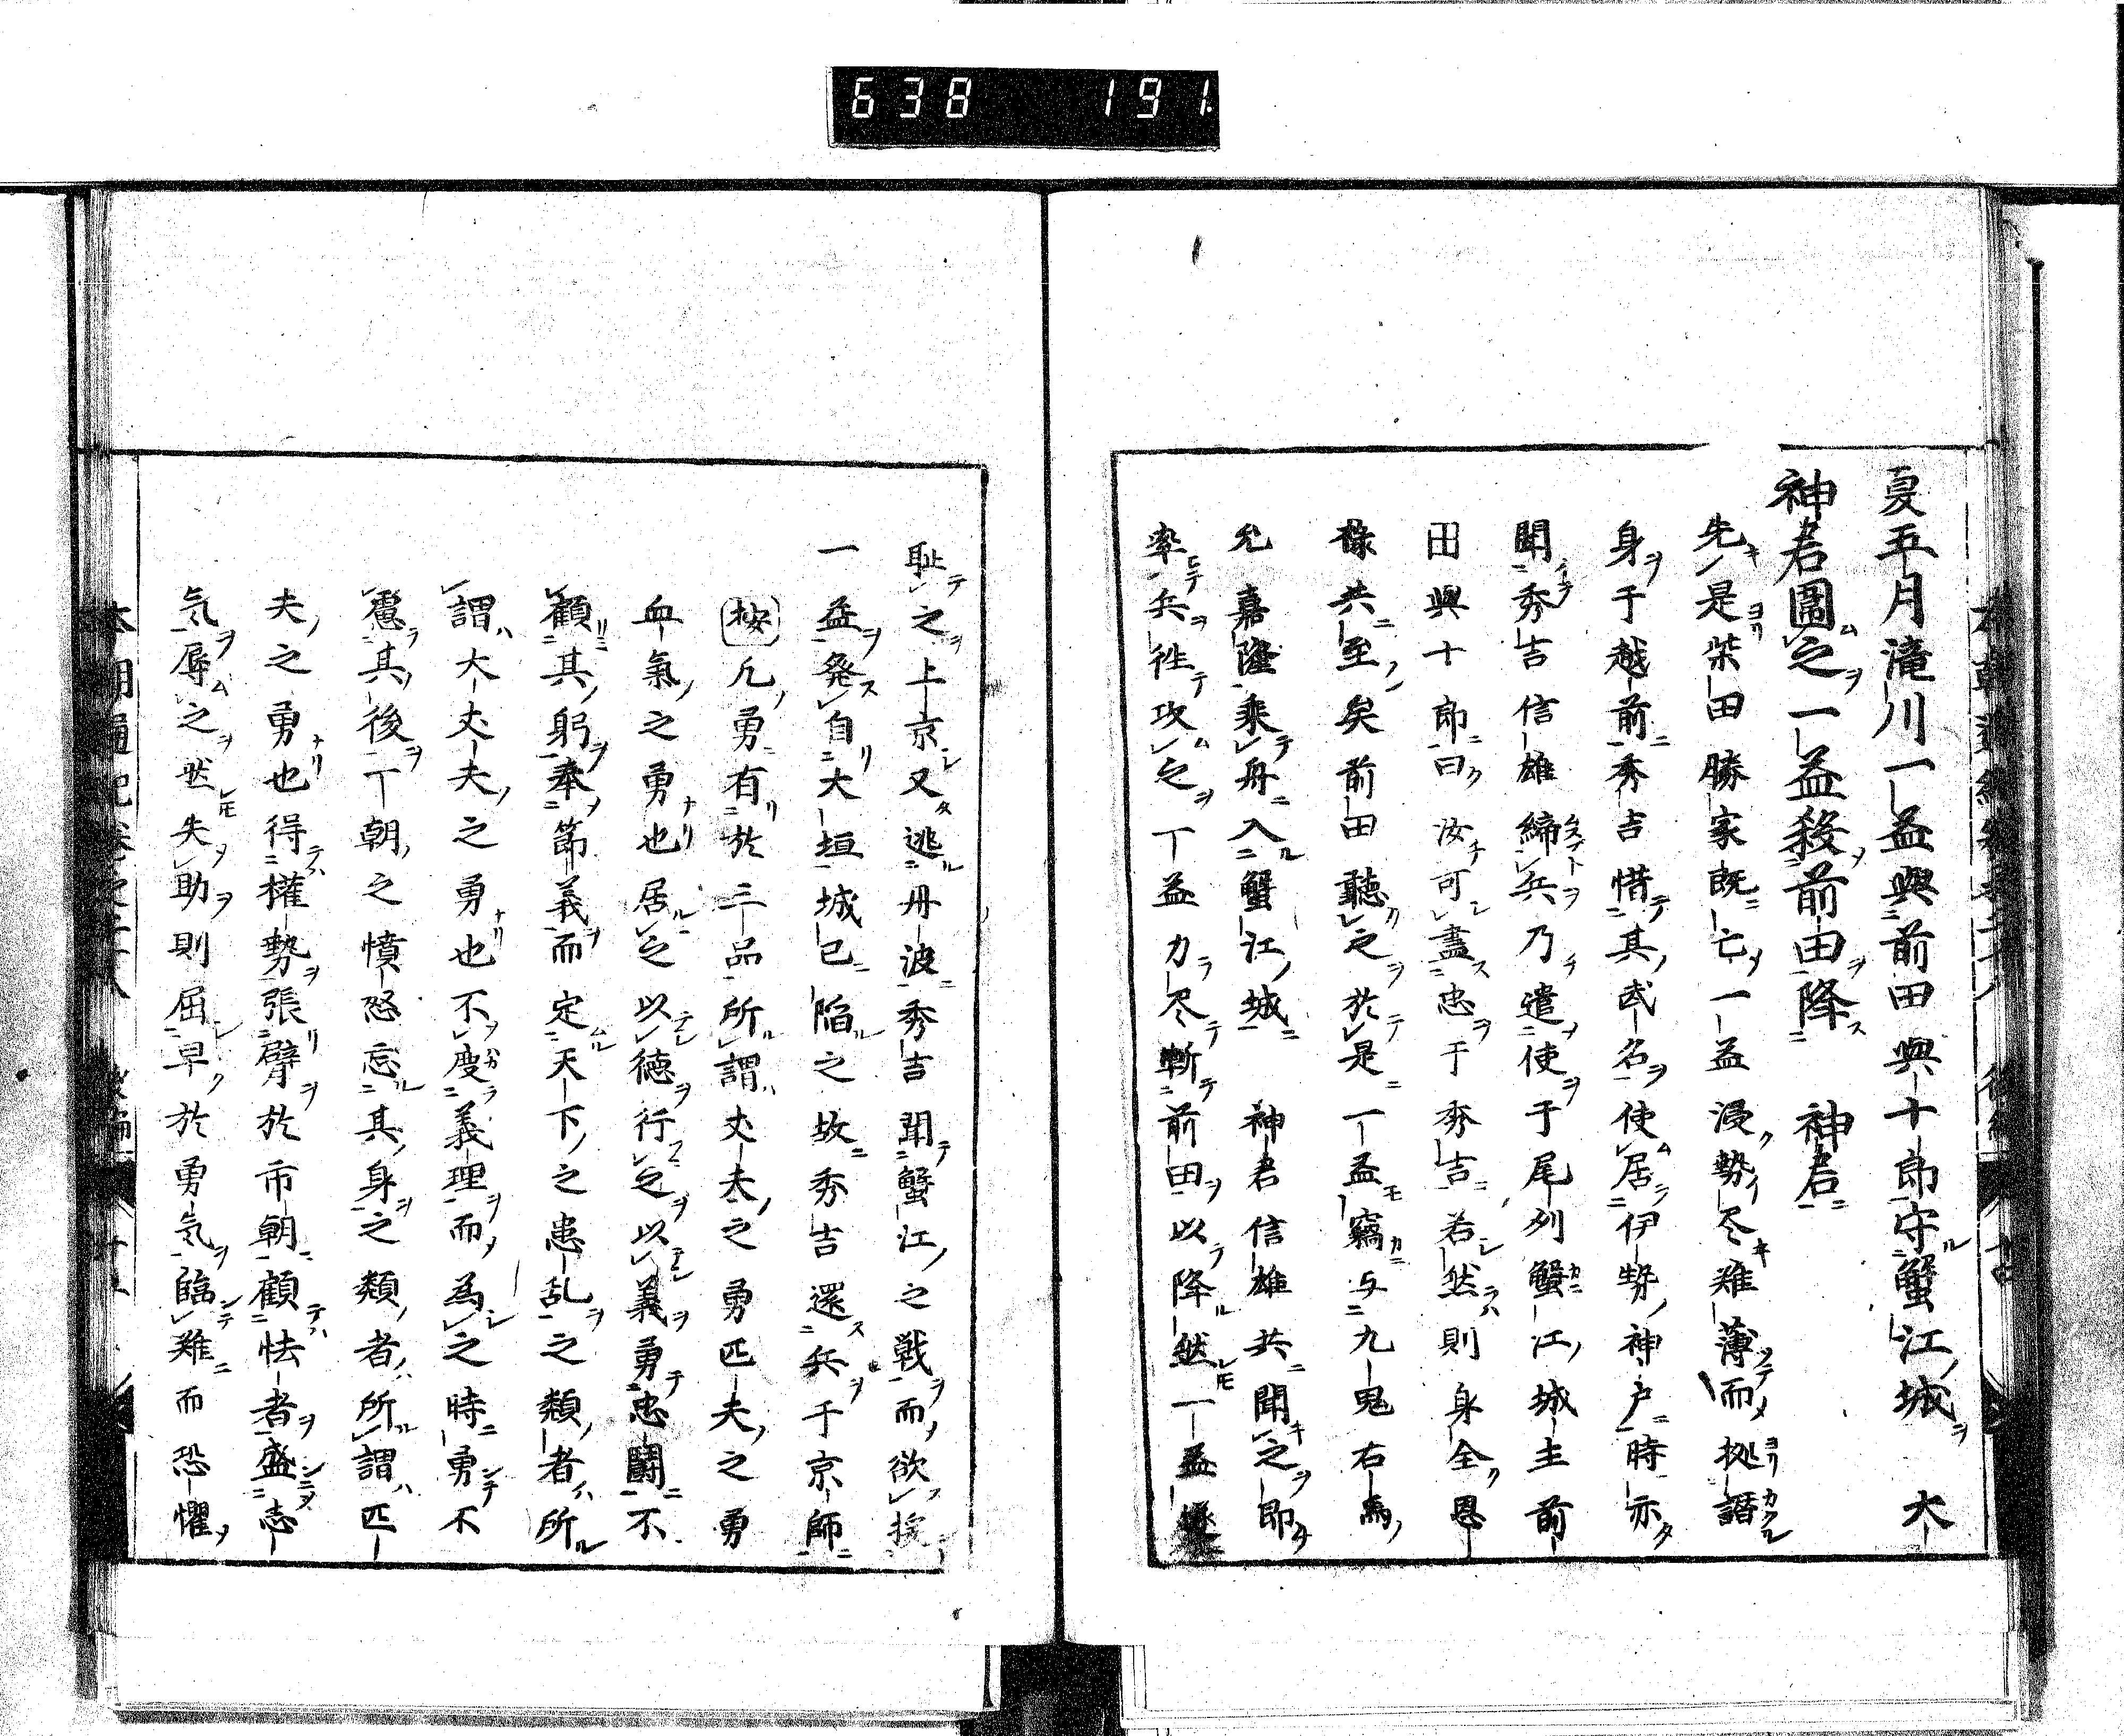 638 191
夏五月滝川一益與前田與十郎守蟹江城 大
神君圍之一益殺前田降 神君
先是柴田勝家既亡一益浸勢尽難薄而拠誻
身于越前秀吉惜其武名使居伊勢神戸時亦
聞秀吉信雄締兵乃遣使于尾列蟹江城主前
田與十郎曰汝可盡忠于秀吉若然則身全恩
禄共至矣前田聽之於是一益竊与九鬼右馬
允嘉隆乘舟入蟹江城 神君信雄共聞之即
率兵徃攻之一益力尽斬前田以降然一益
耻之上京又逃丹波秀吉聞蟹江之戦而欲援
一益発自大垣城已陥之故秀吉還兵于京師
按凡勇有於三品所謂丈夫之勇匹夫之勇
血氣之勇也居之以徳行之以義勇忠鬪不
顧其躬奉節義而定天下之患乱之類者所
謂大丈夫之勇也不度義理而為之時勇不
慮其後一朝之憤怒忘其身之類者所謂匹
夫之勇也得權勢張臂於市朝顧怯者盛志
気辱之然失助則屈早於勇気臨難而恐懼